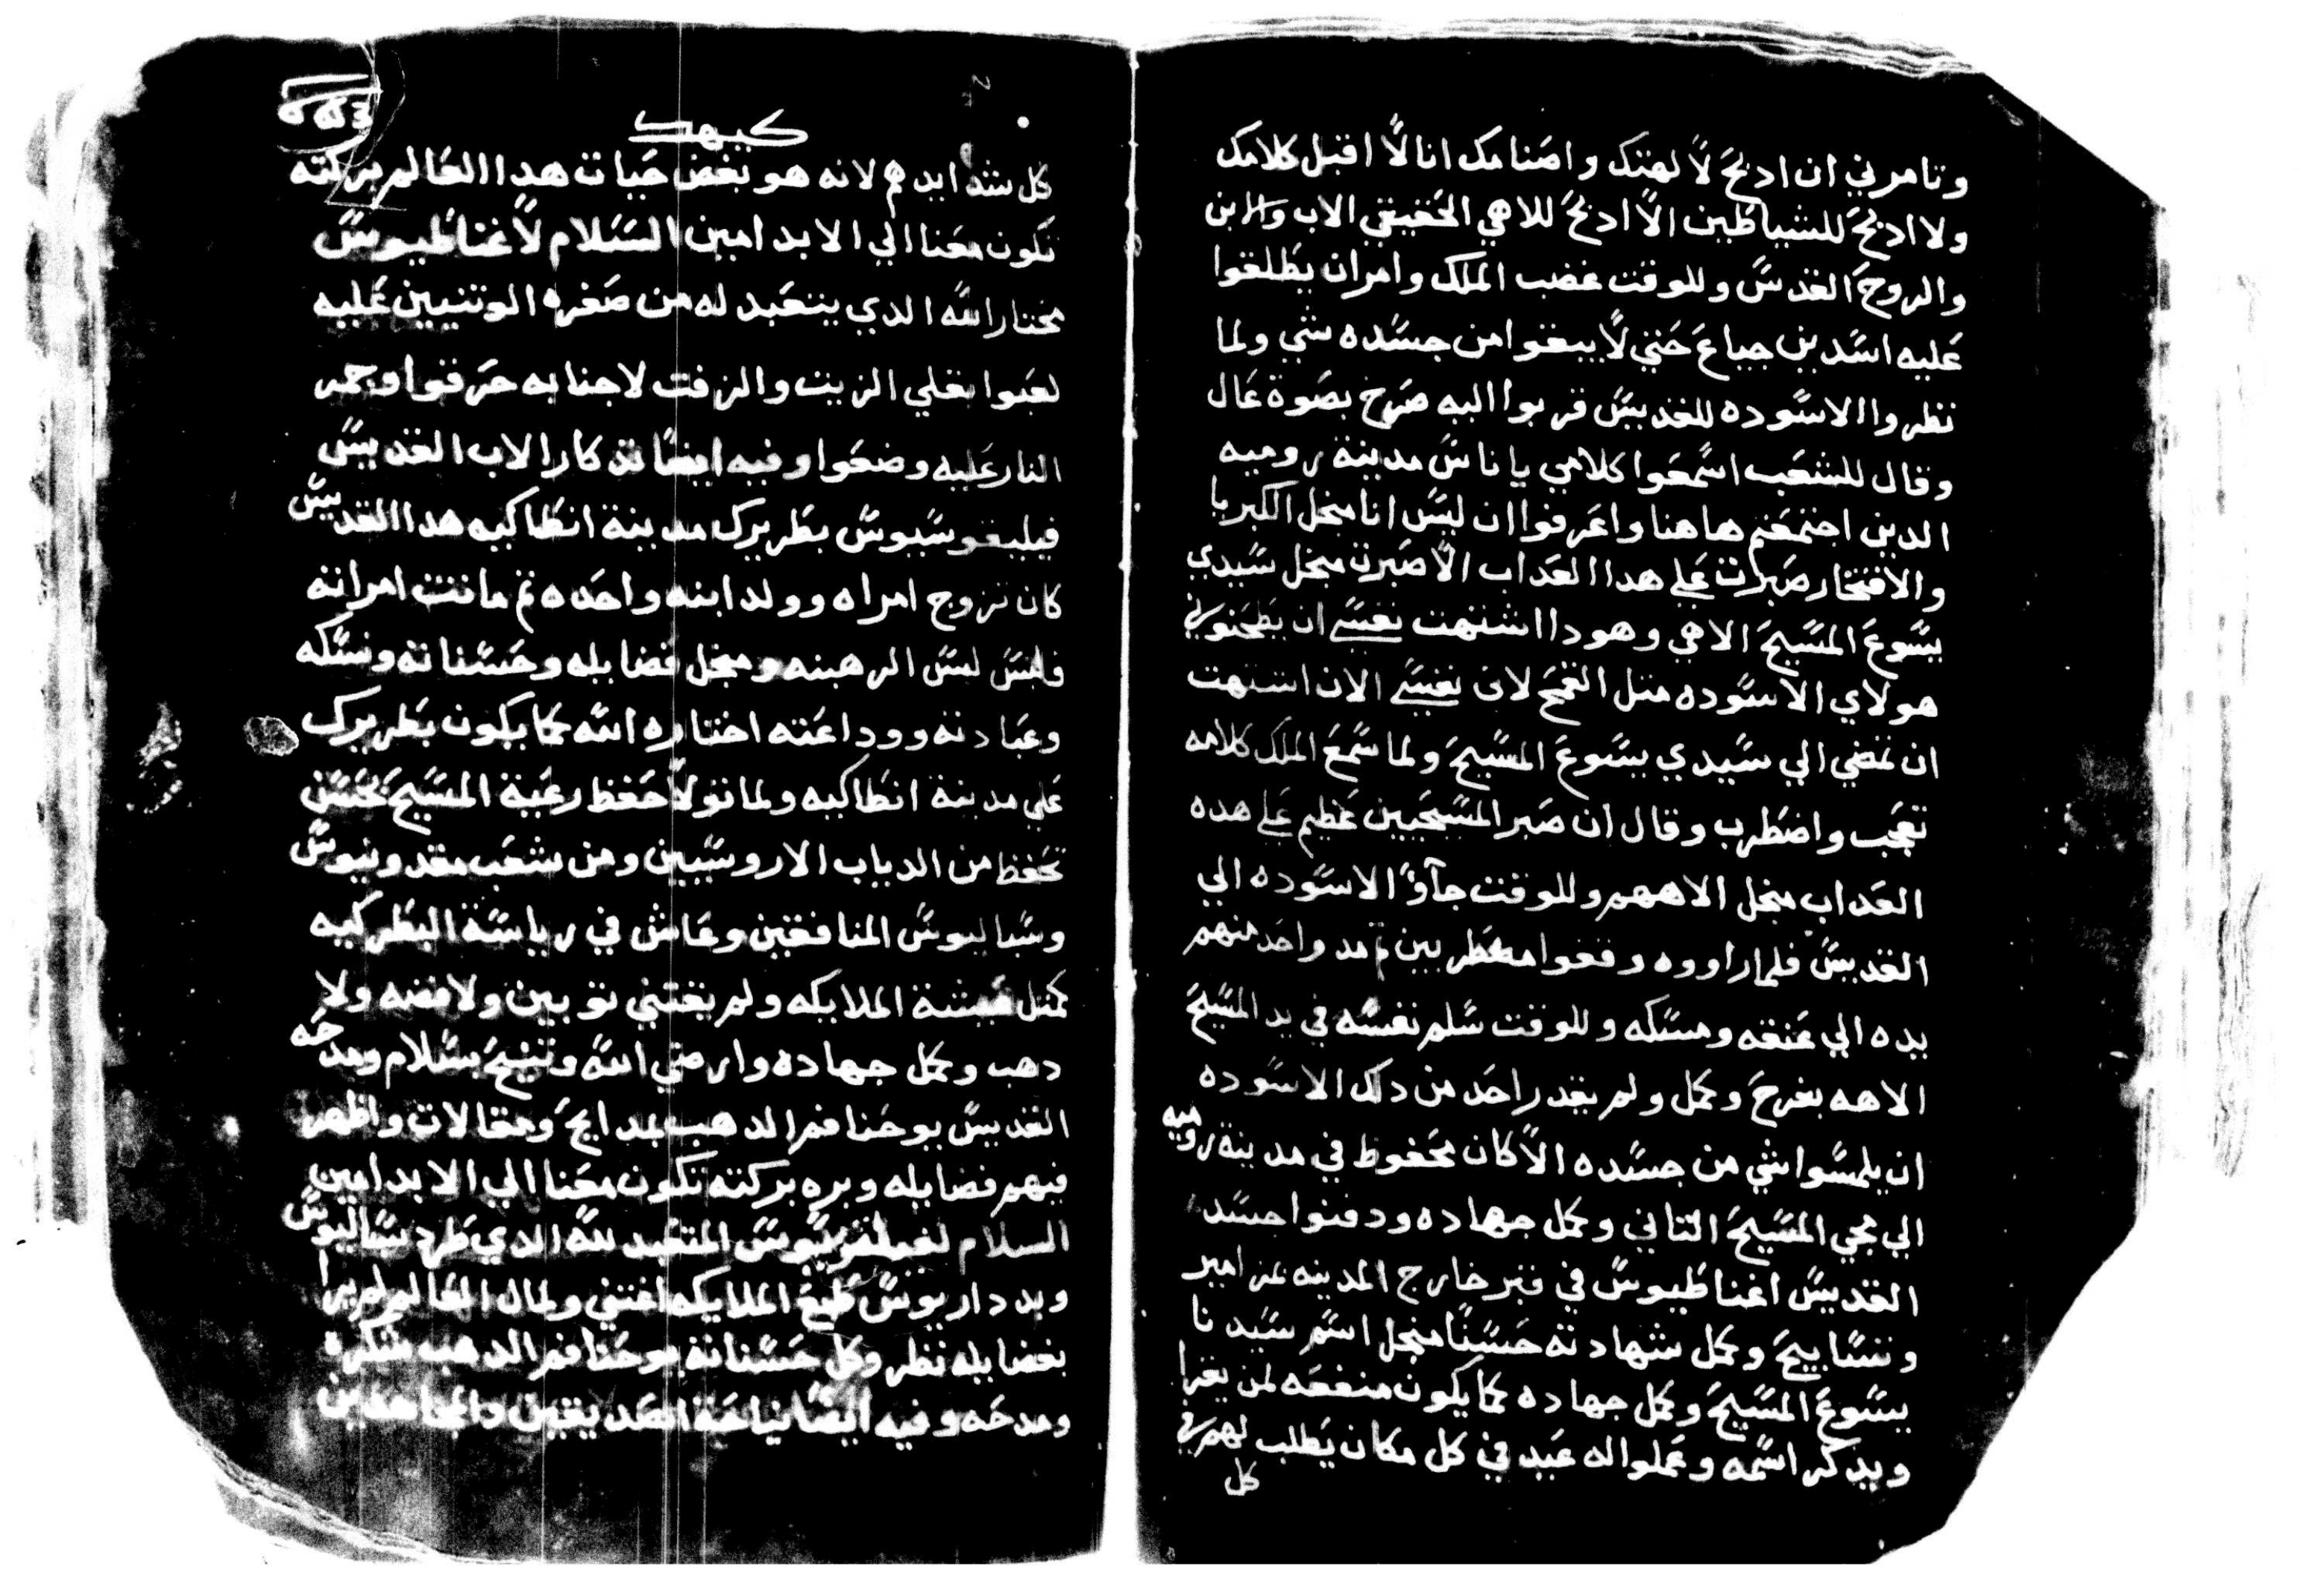 وتامرني ان ادبح لالهتك واصنامك انا لا اقبل كلامك
ولا ادبح للشياطين الا ادبح للاهي الحقيقي الاب والابن
والروح القدس وللوقت غضب الملك وامر ان يطلقوا
عليه اسدين جياع حتي لا يبقوا من جسده شي ولما
نظروا الاسوده للقديس قربوا اليه صرخ بصوة عال
وقال للشعب اسمعوا كلامي يا ناس مدينة روميه
الدين اجتمعتم هاهنا واعرفوا ان ليس انا منجل الكبريا
والافتخار صبرت علي هدا العداب الا صبرت منجل سيدي
يسوع المسيح الاهي وهودا اشتهت نفسي ان يطحنوني
هولاي الاسوده متل القمح لان نفسي الان اشتهت
ان تمضي الي سيدي يسوع المسيح ولما سمع الملك كلامه
تعجب واضطرب وقال ان صبر المسيحيين عظيم علي هده
العداب منجل الاههم وللوقت جآؤ الاسوده الي
القديس فلما راووه وقفوا مضطربين تم مد واحد منهم
يده الي عنقه ومسكه وللوقت سلم نفسه في يد المسيح
الاهه بفرح وكمل ولم يقدر احد من دلك الاسوده
ان يلمسوا شي من جسده الا كان محفوظ في مدينة روميه
الي مجي المسيح التاني وكمل جهاده ودفنوا جسد
القديس اغناطيوس في قبر خارج المدينه بمزامير
وتسابيح وكمل شهادته حسنا منجل اسم سيدنا
يسوع المسيح وكمل جهاده كما يكون منفعه لمن يقرا
ويدكر اسمه وعملوا له عيد في كل مكان يطلب لهم في
كل
كيهك
كل شدايدهم لانه هو بغض حيات هدا العالم بركته
تكون معنا الي الابد امين السلام لاغناطيوس
مختار الله الدي يتعبد له من صغره الوتنيين عليه
لعبوا بقلي الزيت والزفت لاجنابه حرقوا وجمر
النار عليه وضعوا وفيه ايضا تدكار الاب القديس
فيليغوسيوس بطريرك مدينة انطاكيه هدا القديس
كان تزوج امراه وولد ابنه واحده تم ماتت امراته
فلبس لبس الرهبنه ومنجل فضايله وحسناته ونسكه
وعبادته ووداعته اختاره الله كما يكون بطريرك
علي مدينة انطاكيه ولما تولا حفظ رعية المسيح بحسن
تحفظ من الدياب الاروسيين ومن شعب مقدونيوس
وسباليوس المنافقين وعاش في رياسة البطركيه
كمتل عيشة الملايكه ولم يقتني توبين ولا فضه ولا
دهب وكمل جهاده وارضي الله وتنيح بسلام ومدحه
القديس يوحنا فم الدهب بمدايح ومقالات واظهر
فيهم فضايله وبره بركته تكون معنا الي الابد امين
السلام المتعبد لله الدي طرد سباليوس
وبد داريوس طبع الملايكه اقتني ولمال العالم لم يرا
بفضايله نظر وكل حسناته يوحنا فم الدهب شكره
ومدحه وفيه ايضا نياحة الصديقين والمجاهدين